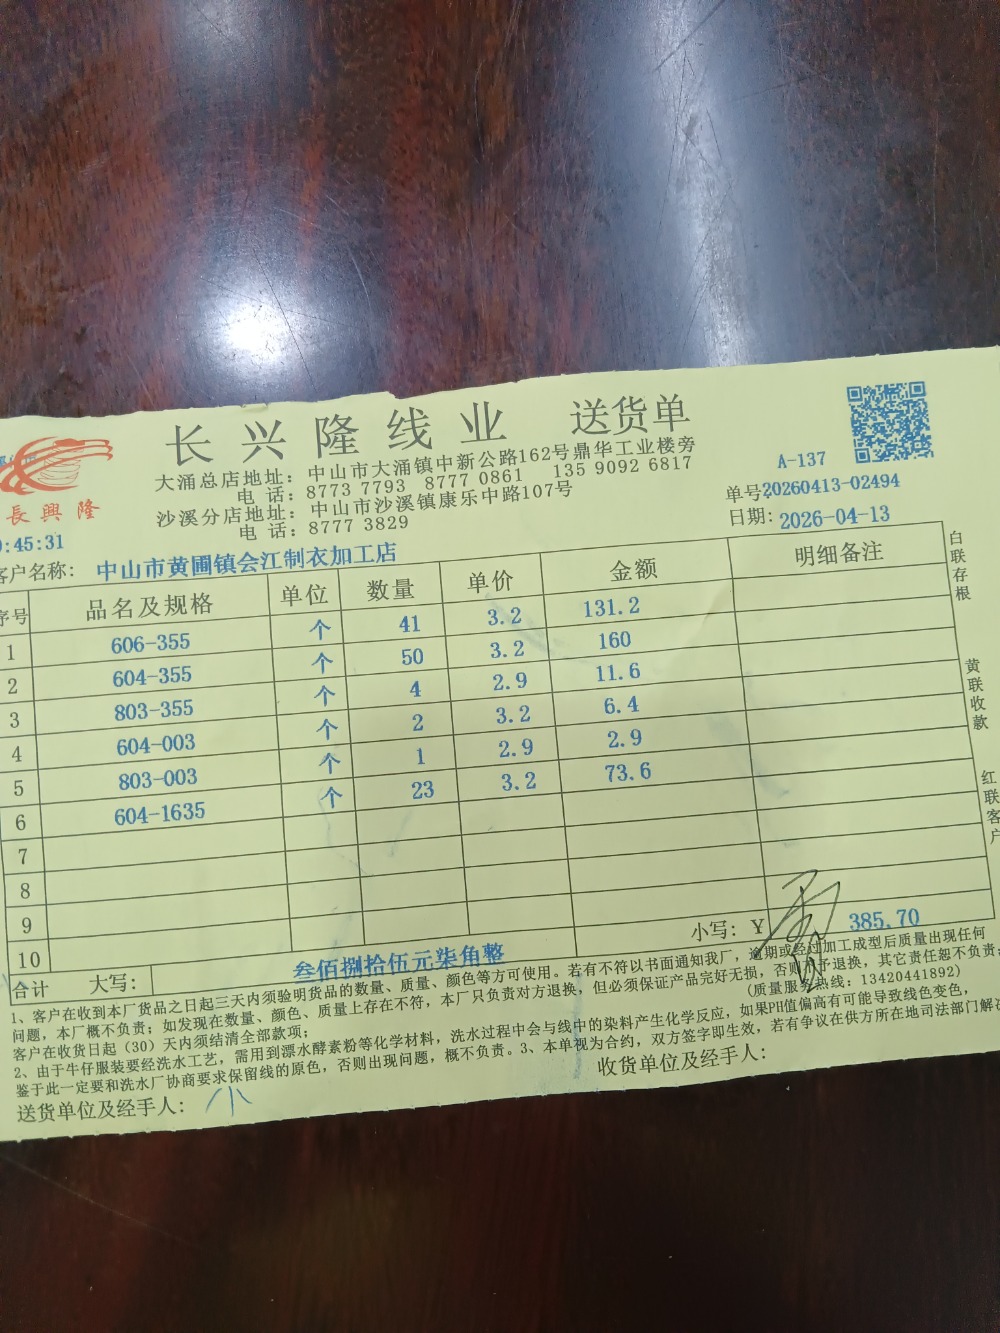 长兴隆线业 送货单
長興隆
大涌总店地址：中山市大涌镇中新公路162号鼎华工业楼旁
电 话：8773 7793 8777 0861 135 9092 6817
沙溪分店地址：中山市沙溪镇康乐中路107号
电 话：8777 3829
A-137
单号20260413-02494
日期：2026-04-13
:45:31
客户名称：中山市黄圃镇会江制衣加工店
序号 品名及规格 单位 数量 单价 金额 明细备注
1 606-355 个 41 3.2 131.2
2 604-355 个 50 3.2 160
3 803-355 个 4 2.9 11.6
4 604-003 个 2 3.2 6.4
5 803-003 个 1 2.9 2.9
6 604-1635 个 23 3.2 73.6
7
8
9
10
合计 大写：叁佰捌拾伍元柒角整 小写：¥ 385.70
白联存根
黄联收款
红联客户
1、客户在收到本厂货品之日起三天内须验明货品的数量、质量、颜色等方可使用。若有不符以书面通知我厂，逾期或经过加工成型后质量出现任何
问题，本厂概不负责；如发现在数量、颜色、质量上存在不符，本厂只负责对方退换，但必须保证产品完好无损，否则不予退换，其它责任恕不负责；
客户在收货日起（30）天内须结清全部款项； (质量服务热线：13420441892)
2、由于牛仔服装要经洗水工艺，需用到漂水酵素粉等化学材料，洗水过程中会与线中的染料产生化学反应，如果PH值偏高有可能导致线色变色，
鉴于此一定要和洗水厂协商要求保留线的原色，否则出现问题，概不负责。3、本单视为合约，双方签字即生效，若有争议在供方所在地司法部门解决
送货单位及经手人：小 收货单位及经手人：